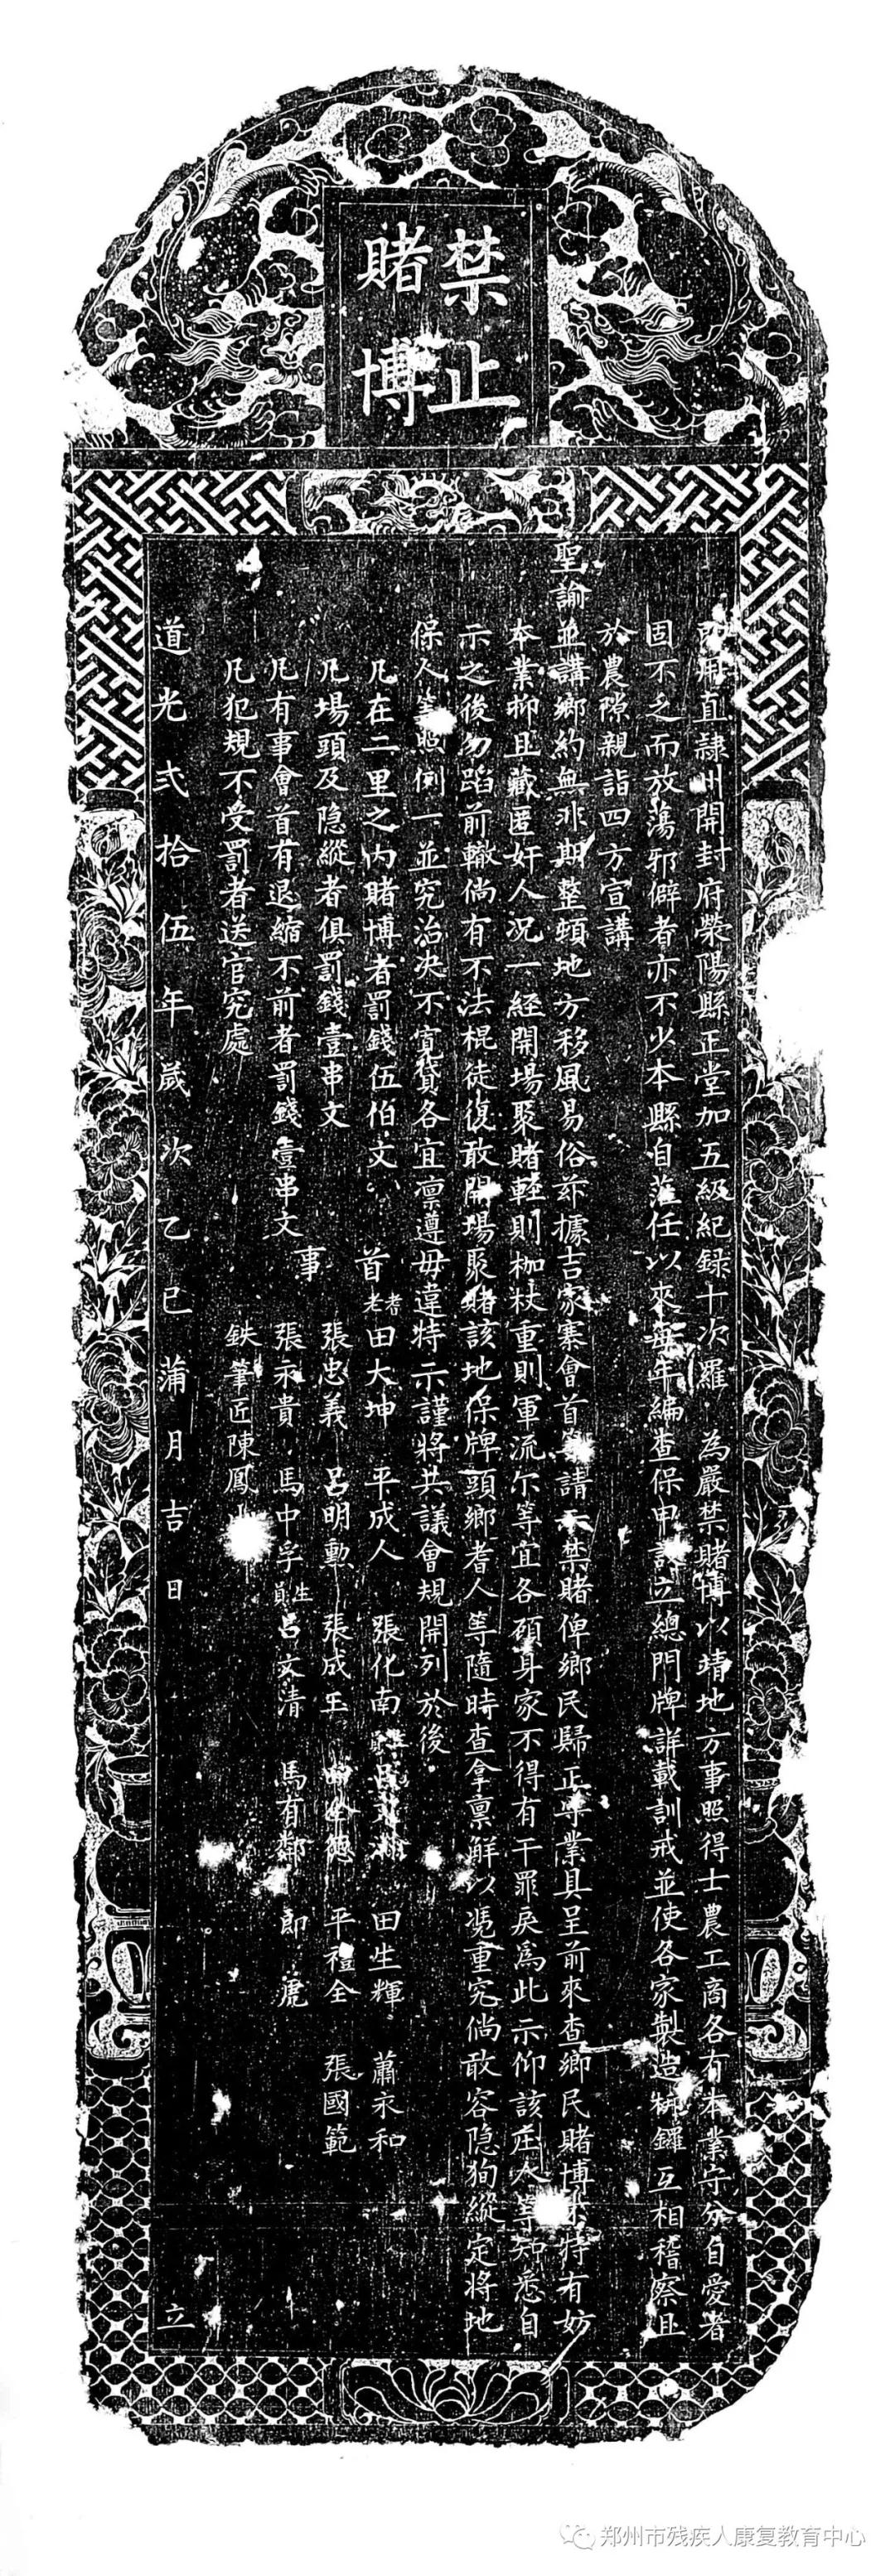 禁止
賭博
用直隸州開封府滎陽縣正堂加五級紀録十次羅 為嚴禁賭博以靖地方事照得士農工商各有本業守分自愛者
固不乏而放蕩邪僻者亦不少本縣自蒞任以來每年編查保甲設立總門牌詳載訓戒並使各家製造梆鑼互相稽察且
於農隙親詣四方宣講
聖諭並講鄉約無非期整頓地方移風易俗茲據吉家寨會首等請示禁賭俾鄉民歸正守業具呈前來查鄉民賭博不特有妨
本業抑且藏匿奸人況一經開場聚賭輕則枷杖重則軍流尔等宜各顧身家不得有干罪戾為此示仰該庄人等知悉自
示之後勿蹈前轍倘有不法棍徒復敢開場聚賭該地保牌頭鄉耆人等隨時查拿禀解以憑重究倘敢容隐狥縱定將地
保人等照例一並究治决不寬貸各宜凛遵毋違特示謹將共議會規開列於後
凡在二里之内賭博者罰錢伍伯文
凡場頭及隐縱者俱罰錢壹串文
凡有事會首有退縮不前者罰錢壹串文
凡犯規不受罰者送官究處
首事
耆老田大坤 平成人 張化南 田生輝 蕭永和
張忠義 呂明勳 張成王 平禮全 張國範
張永貴 馬中孚 生員呂文清 馬有鄰 郎虎
鉄筆匠陳鳳
道光弍拾伍年歲次乙巳蒲月吉日 立
郑州市残疾人康复教育中心